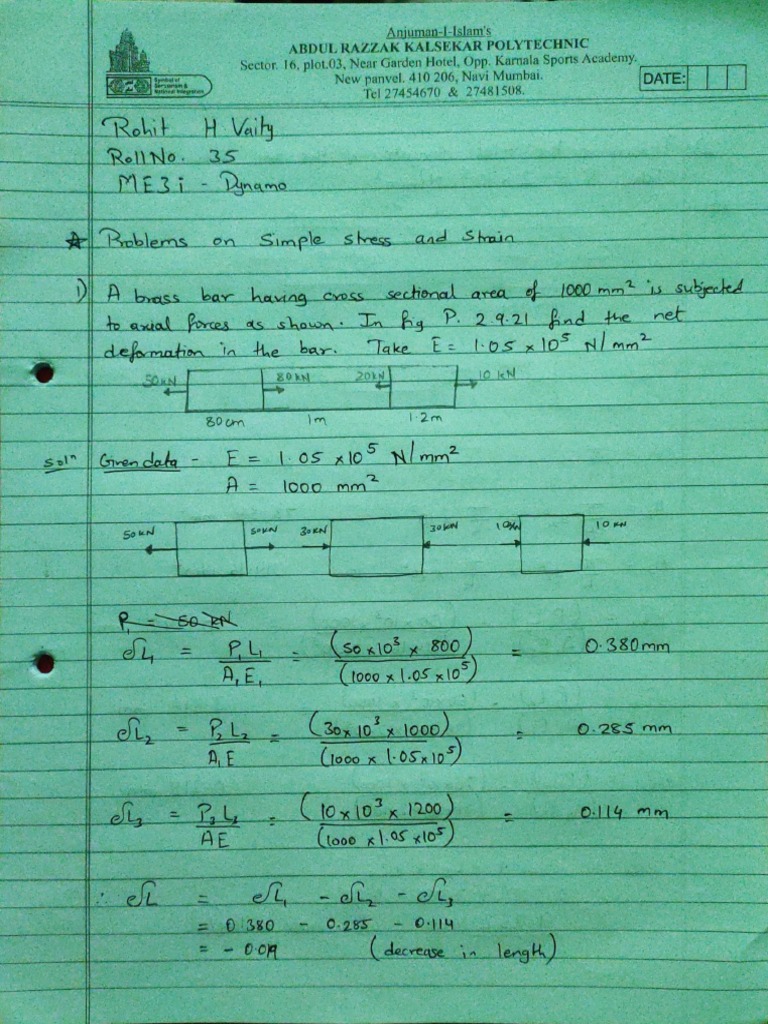 Anjuman-I-Islam's
ABDUL RAZZAK KALSEKAR POLYTECHNIC
Sector. 16, plot.03, Near Garden Hotel, Opp. Karnala Sports Academy.
New panvel. 410 206, Navi Mumbai.
Tel 27454670 & 27481508.
DATE:
Symbol of
Secularism &
National Integration
Rohit H Vaity
Roll No. 35
ME3i - Dynamo
Problems on Simple stress and Strain
1) A brass bar having cross sectional area of 1000 mm² is subjected
to axial forces as shown. In fig P. 2.9.21 find the net
deformation in the bar. Take E = 1.05 × 10⁵ N/mm²
50 kN 80 kN 20 kN 10 kN
80 cm 1m 1.2m
Solⁿ Given data - E = 1.05 ×10⁵ N/mm²
A = 1000 mm²
50 kN 50 kN 30 kN 30 kN 10 kN 10 kN
P₁ = 50 kN
δL₁ = P₁L₁ / A₁E₁ = (50×10³ × 800) / (1000 × 1.05 ×10⁵) = 0.380 mm
δL₂ = P₂L₂ / A₁E = (30×10³ × 1000) / (1000 × 1.05×10⁵) = 0.285 mm
δL₃ = P₃L₃ / AE = (10×10³ × 1200) / (1000 × 1.05 ×10⁵) = 0.114 mm
∴ δL = δL₁ - δL₂ - δL₃
= 0.380 - 0.285 - 0.114
= - 0.019 (decrease in length)